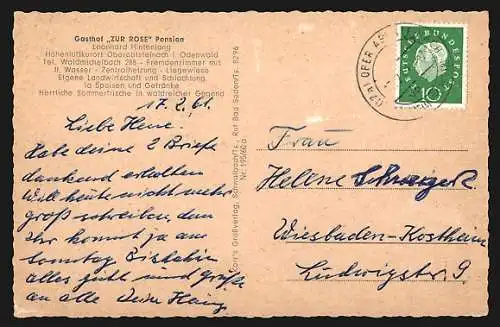 Gasthof „ZUR ROSE" Pension
Leonhard Hintenlang
Höhenluftkurort Oberabtsteinach i. Odenwald
Tel. Waldmichelbach 286 - Fremdenzimmer mit
fl. Wasser - Zentralheizung - Liegewiese
Eigene Landwirtschaft und Schlachtung
la Speisen und Getränke
Herrliche Sommerfrische in waldreicher Gegend
17.2.61.
Liebe Hene!
Habe deine 2 Briefe
dankend erhalten
Will heute nicht mehr
groß schreiben, denn
Ihr kommt ja am
Sonntag Bis dahin
alles gute und grüße
an alle Dein Heinz
Nr. 195/60 a
Schmalbach/Ts. Ruf Bad Baden/Ts. 8296
DEUTSCHE BUNDESPOST
10
OBER AB
Frau
Helene
Wiesbaden-Kostheim
Ludwigstr. 9